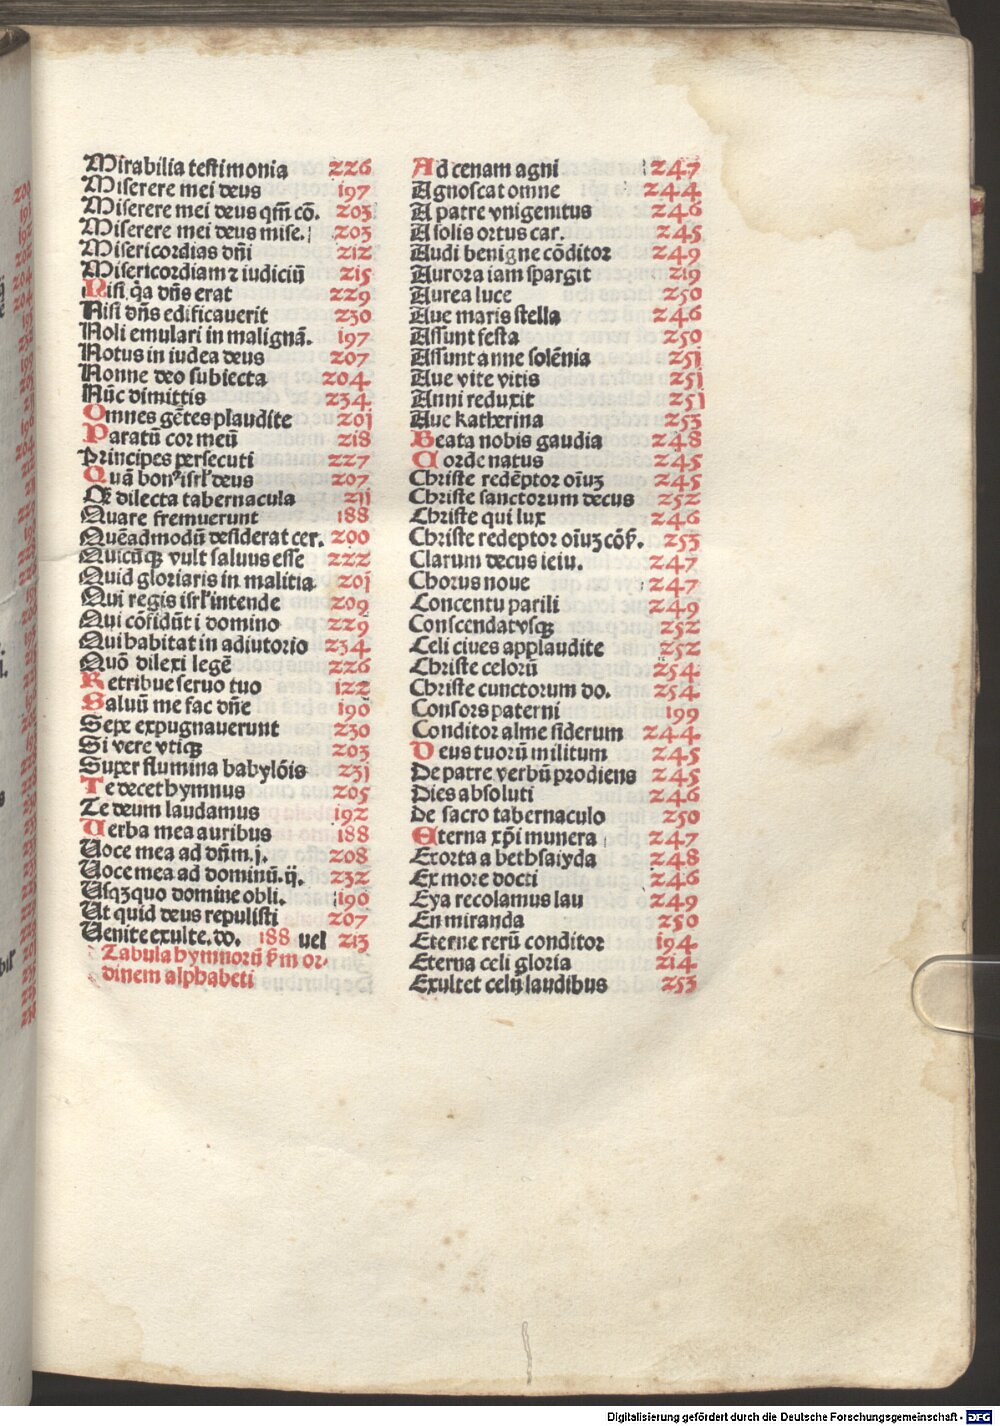 Mirabilia testimonia 226
Miserere mei deus 197
Miserere mei deus qm̄ cō. 203
Miserere mei deus mise. 203
Misericordias dn̄i 212
Misericordiam ⁊ iudiciū 215
Nisi q̄a dn̄s erat 229
Nisi dn̄s edificauerit 230
Noli emulari in malignā. 197
Notus in iudea deus 207
Nonne deo subiecta 204
Nūc dimittis 234
Omnes gētes plaudite 20j
Paratū cor meū 218
Principes persecuti 227
Quā bonꝰ isrl̓ deus 207
Qꝫ dilecta tabernacula 2jj
Quare fremuerunt 188
Quēadmodū desiderat cer. 200
Quicūqꝫ vult saluus esse 222
Quid gloriaris in malitia 20j
Qui regis isrl̓ intende 209
Qui cōfidūt i domino 229
Qui habitat in adiutorio 234
Quō dilexi legē 226
Retribue seruo tuo 122
Saluū me fac dn̄e 190
Sepe expugnauerunt 230
Si vere vtiqꝫ 203
Super flumina babylōis 23j
Te decet hymnus 205
Te deum laudamus 192
Uerba mea auribus 188
Uoce mea ad dn̄m. j. 208
Uoce mea ad dominū. ij. 232
Usqꝫquo domine obli. 190
Ut quid deus repulisti 207
Uenite exulte. do. 188 uel 213
Tabula hymnorū ẜm or-
dinem alphabeti
Ad cenam agni 247
Agnoscat omne 244
A patre vnigenitus 246
A solis ortus car. 245
Audi benigne cōditor 249
Aurora iam spargit 219
Aurea luce 250
Aue maris stella 246
Assunt festa 250
Assunt anne solēnia 25j
Aue vite vitis 25j
Anni reduxit 25j
Aue katherina 253
Beata nobis gaudia 248
Corde natus 245
Christe redēptor oīuꝫ 245
Christe sanctorum decus 252
Christe qui lux 246
Christe redeptor oīuꝫ cōẜ. 253
Clarum decus ieiu. 247
Chorus noue 247
Concentu parili 249
Conscendat vsqꝫ 252
Celi ciues applaudite 252
Christe celorū 254
Christe cunctorum do. 254
Consors paterni 199
Conditor alme siderum 244
Deus tuorū militum 245
De patre verbū prodiens 245
Dies absoluti 246
De sacro tabernaculo 250
Eterna xp̄i munera 247
Exorta a bethsaiyda 248
Ex more docti 246
Eya recolamus lau 249
En miranda 250
Eterne rerū conditor 194
Eterna celi gloria 214
Exultet celū laudibus 253
Digitalisierung gefördert durch die Deutsche Forschungsgemeinschaft - DFG